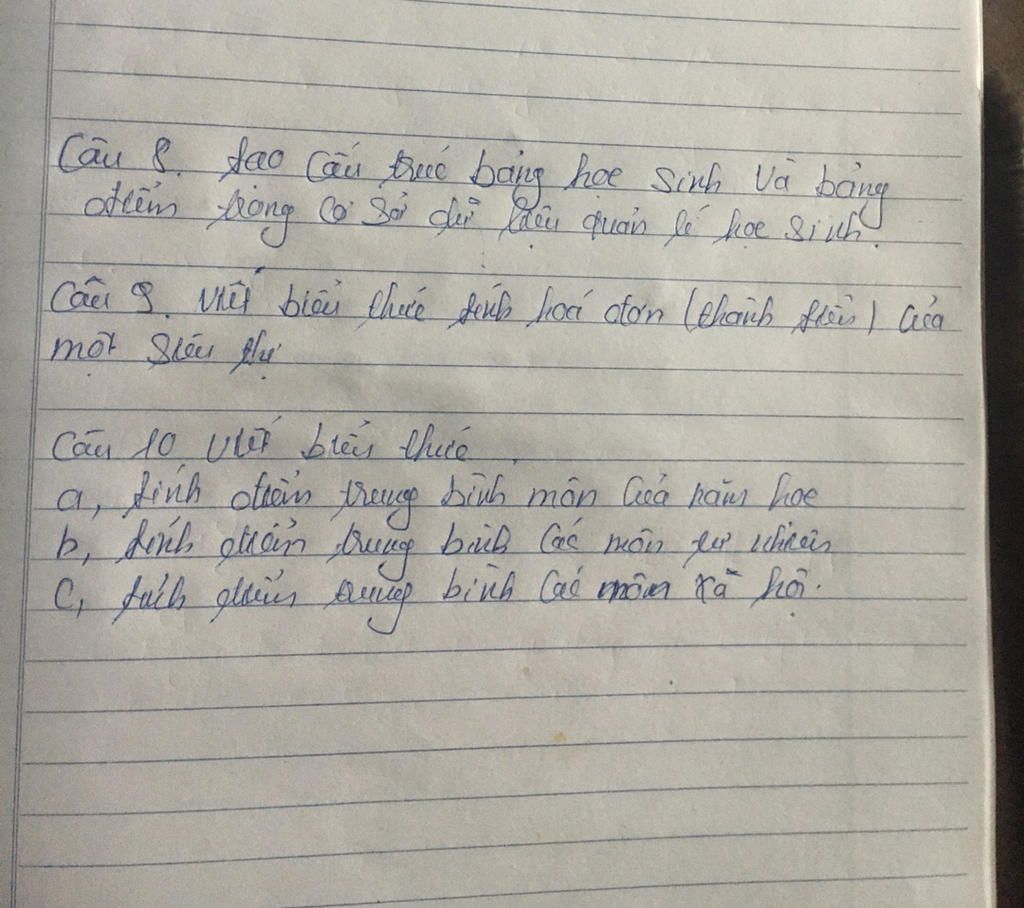 Câu 8. tạo cấu trúc bảng học sinh và bảng
điểm trong cơ sở dữ liệu quản lí học sinh.
Câu 9. Viết biểu thức tính hoá đơn (thành tiền) của
một siêu thị
Câu 10 Viết biểu thức
a, tính điểm trung bình môn của năm học
b, tính điểm trung bình các môn tự nhiên
c, tính điểm trung bình các môn xã hội.